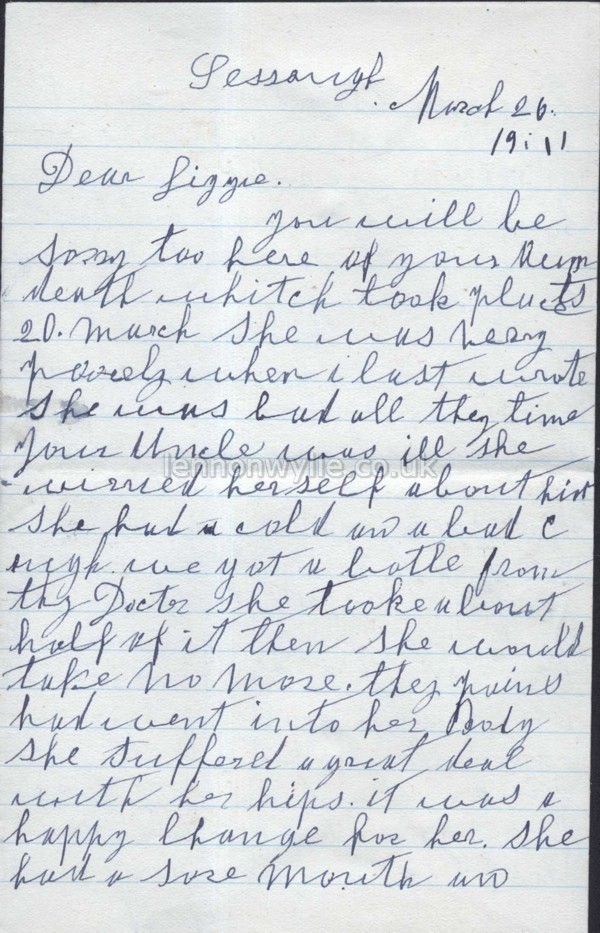 Lessaugh
March 26.
19:11
Dear Lizzie.
you will be
sorry too here of your Aunn
death whitch took placts
20. March she was verry
poorely when i last wrote
she was bad all they time
your Uncle was ill she
wirried herself about him
she had a cold an a bad c
ough. we got a botle from
thy Docter she tooke about
half of it then she would
take no more. they pains
had went into her Body
she suffered a great deal
with her hips. it was a
happy Change for her. she
had a sore mouth an
lennonwylie.co.uk